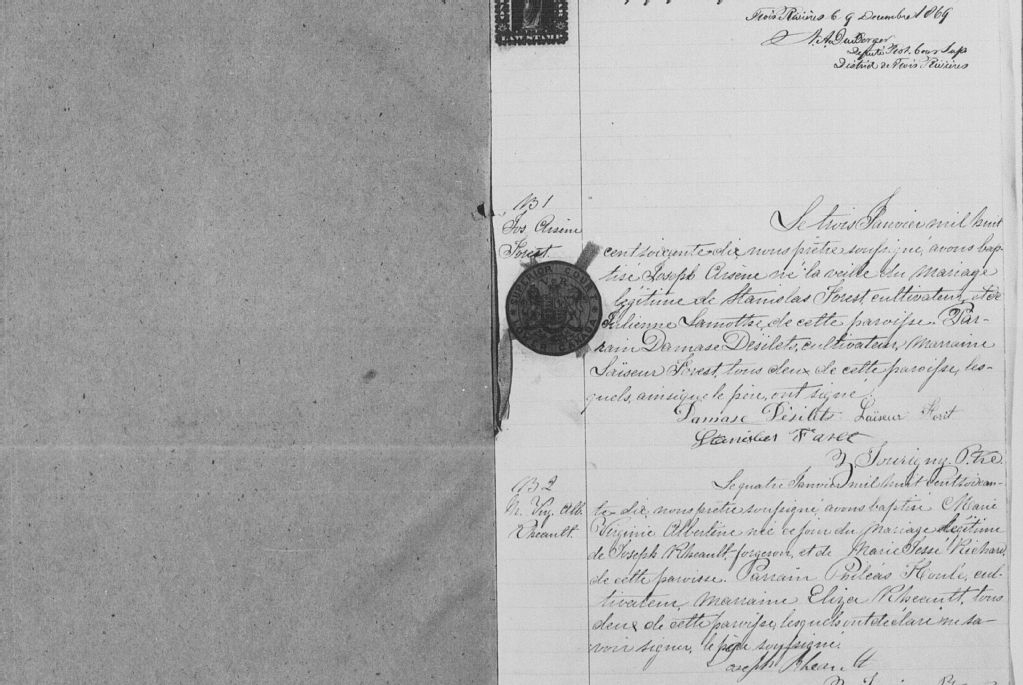 LAW STAMP
Trois Rivières 9 Décembre 1869
Député Prot. Cour Sup
District de Trois Rivières
SUPERIOR COURT
V R
B 1
Jos. Arsène
Forest
Le trois Janvier mil huit
cent soixante-dix nous prêtre soussigné, avons bap-
tisé Joseph Arsène né la veille du mariage
légitime de Stanislas Forest cultivateur, et de
Julienne Lamothe, de cette paroisse. Par-
rain Damase Désilets, cultivateur, Marraine
Forest, tous deux de cette paroisse, les-
quels, ainsi que le père, ont signé.
Damase Désilets
J Tourigny Ptre
B 2
M. Virg. Alb.
Rheault.
Le quatre Janvier mil huit cent soixan-
te-dix, nous prêtre soussigné avons baptisé Marie
Virginie Albertine née ce jour du mariage légitime
de Joseph Rheault forgeron, et de Marie Richard
de cette paroisse. Parrain Philéas Houle, cul-
tivateur, Marraine Eliza Rheault, tous
deux de cette paroisse, lesquels ont déclaré ne sa-
voir signer, le père soussigné.
Joseph Rheault